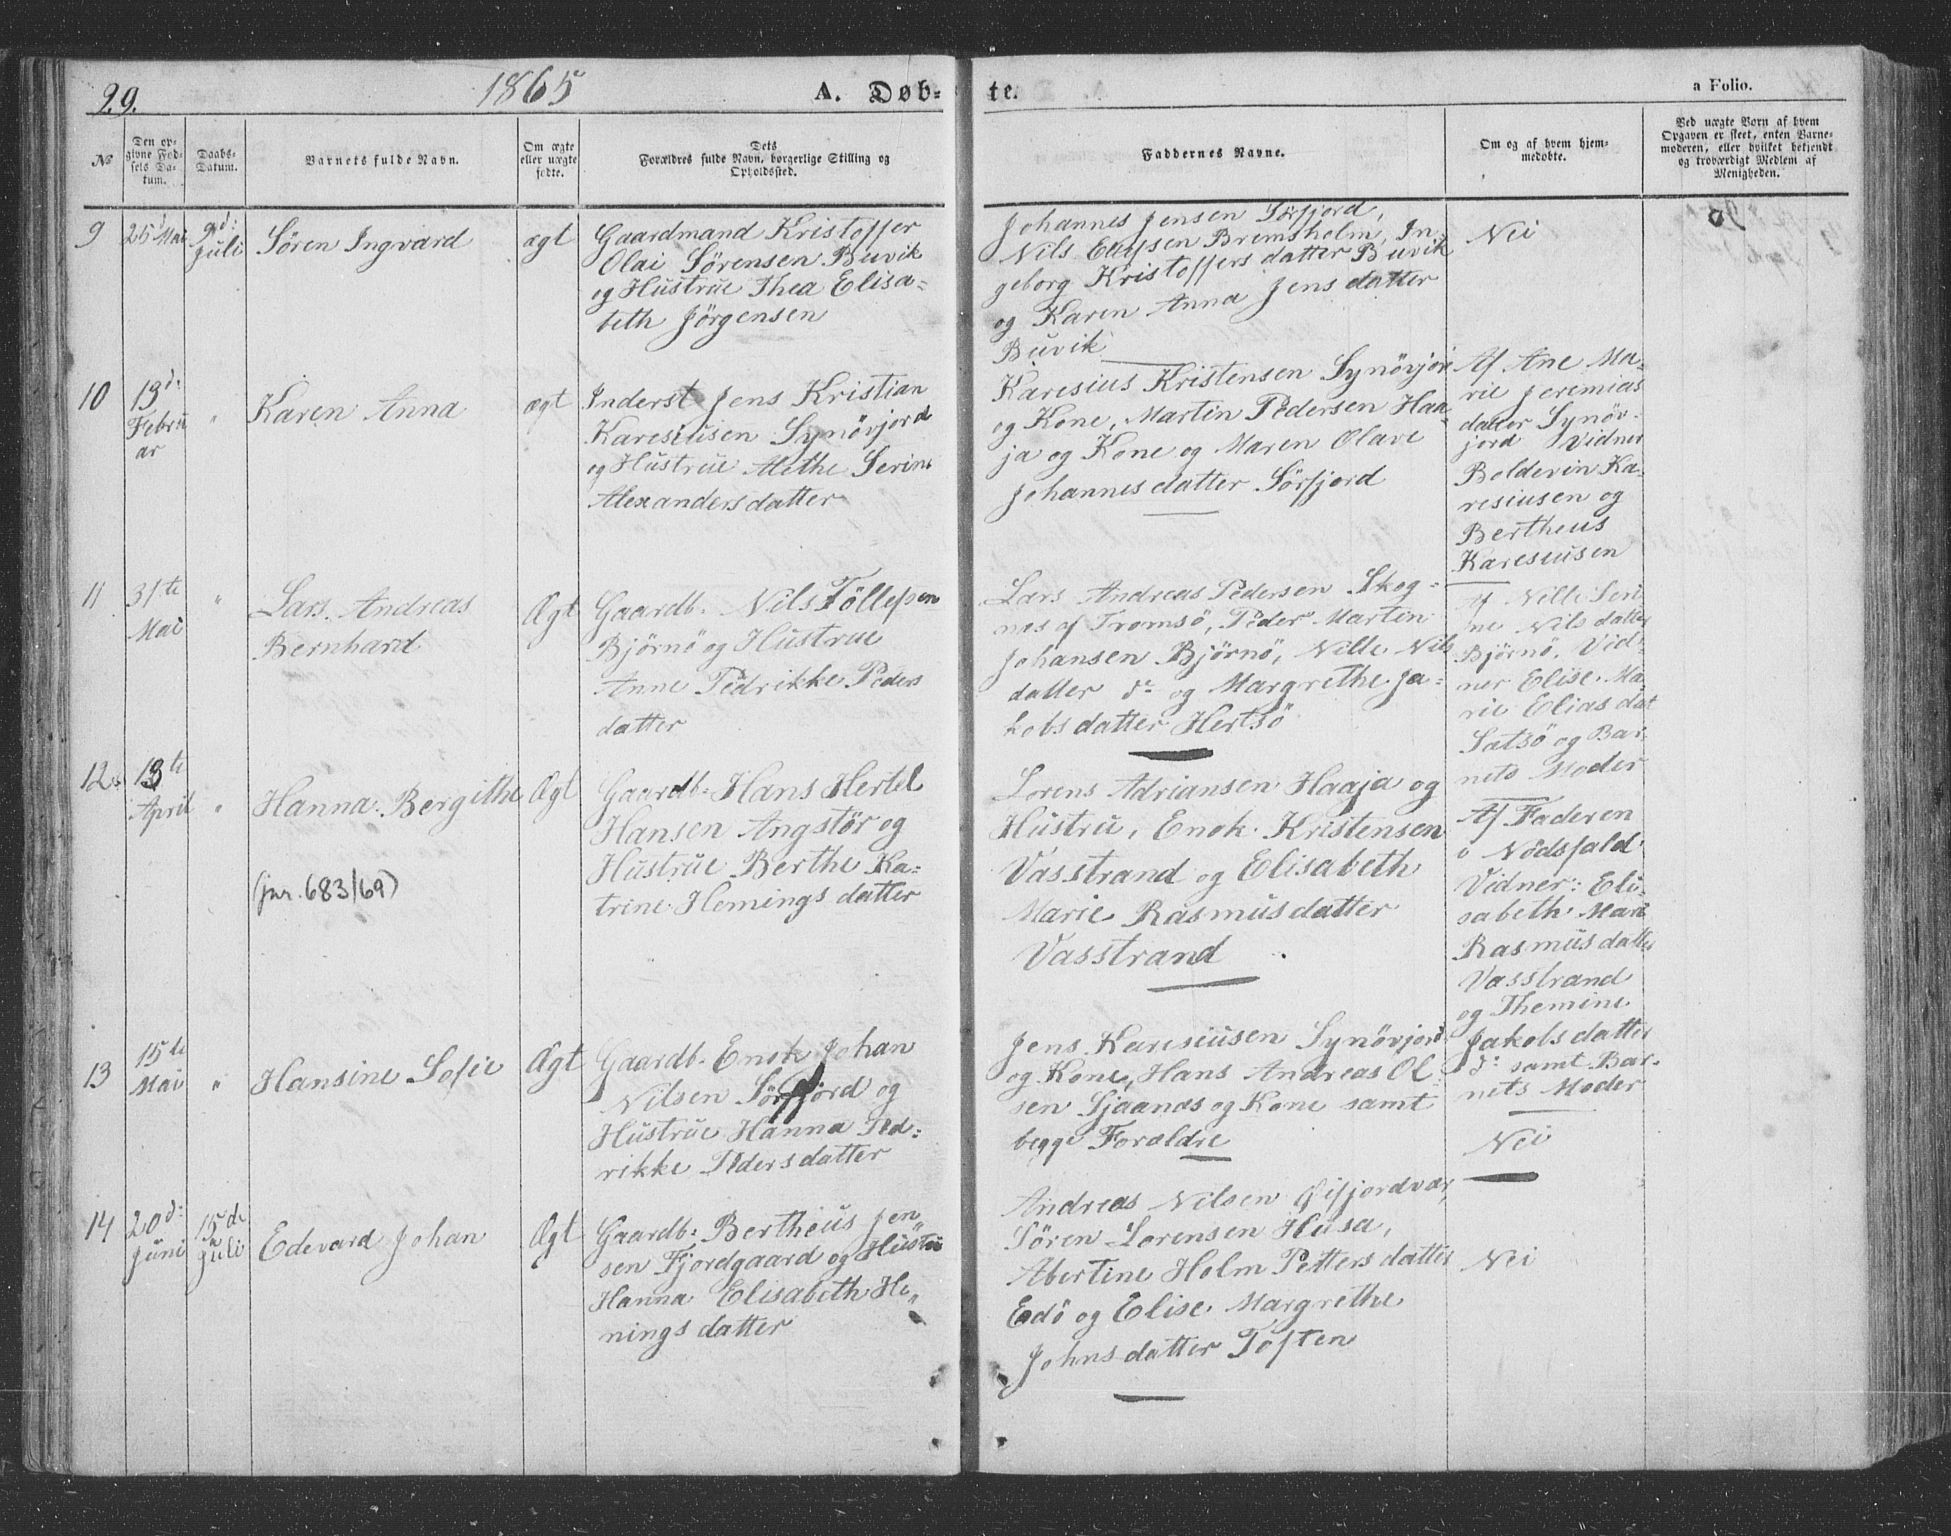 29.
1865
A. Døb-
te.
a Folio.
No
Den op-
givne Fød-
sels Da-
tum.
Daabs-
Datum.
Barnets fulde Navn.
Om ægte
eller uægte
fødte.
Dets
Forældres fulde Navn, borgerlige Stilling og
Opholdssted.
Faddernes Navne.
Om og af hvem hjem-
medøbte.
Ved uægte Børn af hvem
Opgaven er skeet, enten Barne-
moderen, eller hvilket bekjendt
og troværdigt Medlem af
Menigheden.
9
25 Mai
9d:
Juli
Søren Ingvard
ægt
Gaardmand Kristoffer
Olai Sørensen Buvik
og Hustrue Thea Elisa-
beth Jørgensen
Johannes Jensen Sørfjord,
Nils Ellefsen Bremsholm, In-
geborg Kristoffersdatter Buvik
og Karen Anna Jensdatter
Buvik
Nei
10
13d:
Febru
ar
"
Karen Anna
ægt
Inderst Jens Kristian
Karesiusen Synøvjord
og Hustrue Alethe Serine
Alexandersdatter
Karesius Kristensen Synøvjor
og Kone, Martin Pedersen Haa
ja og Kone og Maren Olave
Johannesdatter Sørfjord
Af Ane Ma-
rie Jerimias
datter Synøv-
jord Vidner
Boldevin Ka-
resiusen og
Bertheus
Karesiusen
11
31te
Mai
"
Lars Andreas
Bernhard
Ægt
Gaardb. Nils Töllefsen
Bjørnø og Hustrue
Anne Pedrikke Peders
datter
Lars Andreas Pedersen Skog-
nes af Tromsø, Peder Martin
Johansen Bjørnø, Nille Nils
datter do og Margrethe Ja-
kobsdatter Hertsö
Af Nille Seri
ne Nilsdatter
Bjørnø. Vid-
ner Elise Ma-
rie Eliasdat
Satsø og Bar-
nets Moder
12
13te
April
"
Hanna Bergithe
(jnr. 683/69)
Ægt
Gaardb. Hans Hertel
Hansen Angstör og
Hustrue Berthe Ka-
trine Hemingsdatter
Lorens Adriansen Haaja og
Hustru, Enok Kristensen
Vasstrand og Elisabeth
Marie Rasmusdatter
Vasstrand
Af Faderen
i Nødsfald.
Vidner: Eli-
sabeth Mari
Rasmusdatter
Vasstrand
og Themine
Jakobsdatter
do samt Bar-
nets Moder
13
15te
Mai
"
Hansine Sofie
Ægt
Gaardb. Enok Johan
Nilsen Sörfjord og
Hustrue Hanna Ped-
rikke Pedersdatter
Jens Karesiusen Synøvjord
og Kone, Hans Andreas Ol-
sen Sjaanas og Kone samt
begge Forældre
Nei
14
20d:
Juni
15de
Juli
Edevard Johan
Ægt
Gaardb. Bertheus Jen
sen Fjordgaard og Hustru
Hanna Elisabeth He-
ningsdatter
Andreas Nilsen Øifjordvær,
Søren Lorensen Husa,
Abertine Holm Pettersdatter
Edö og Elise Margrethe
Johnsdatter Toften
Nei